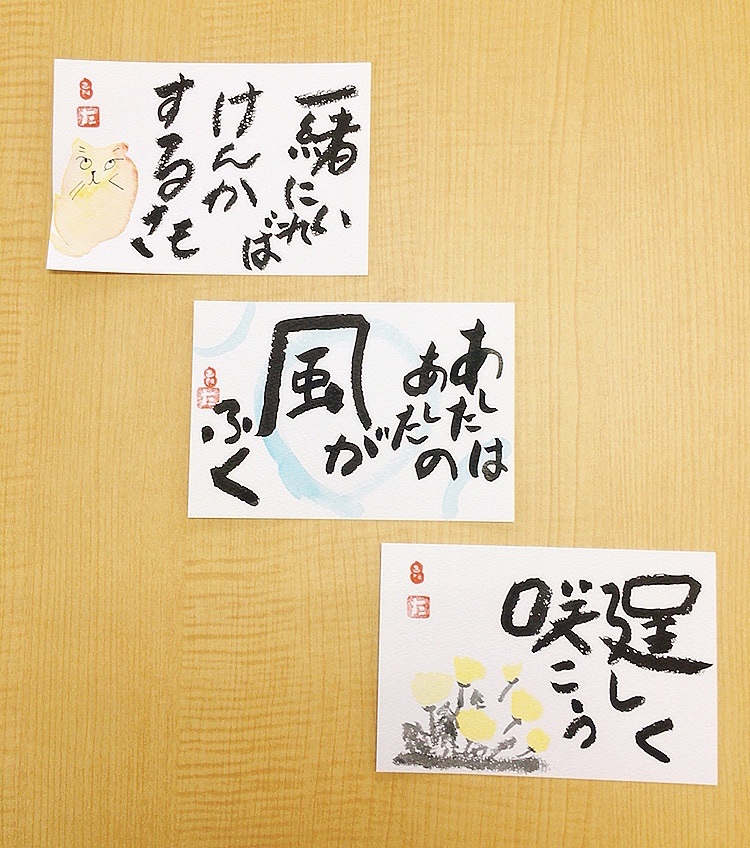 一緒にいれば
けんか
する
あしたは
あしたの
風が
ふく
逞しく
咲こう